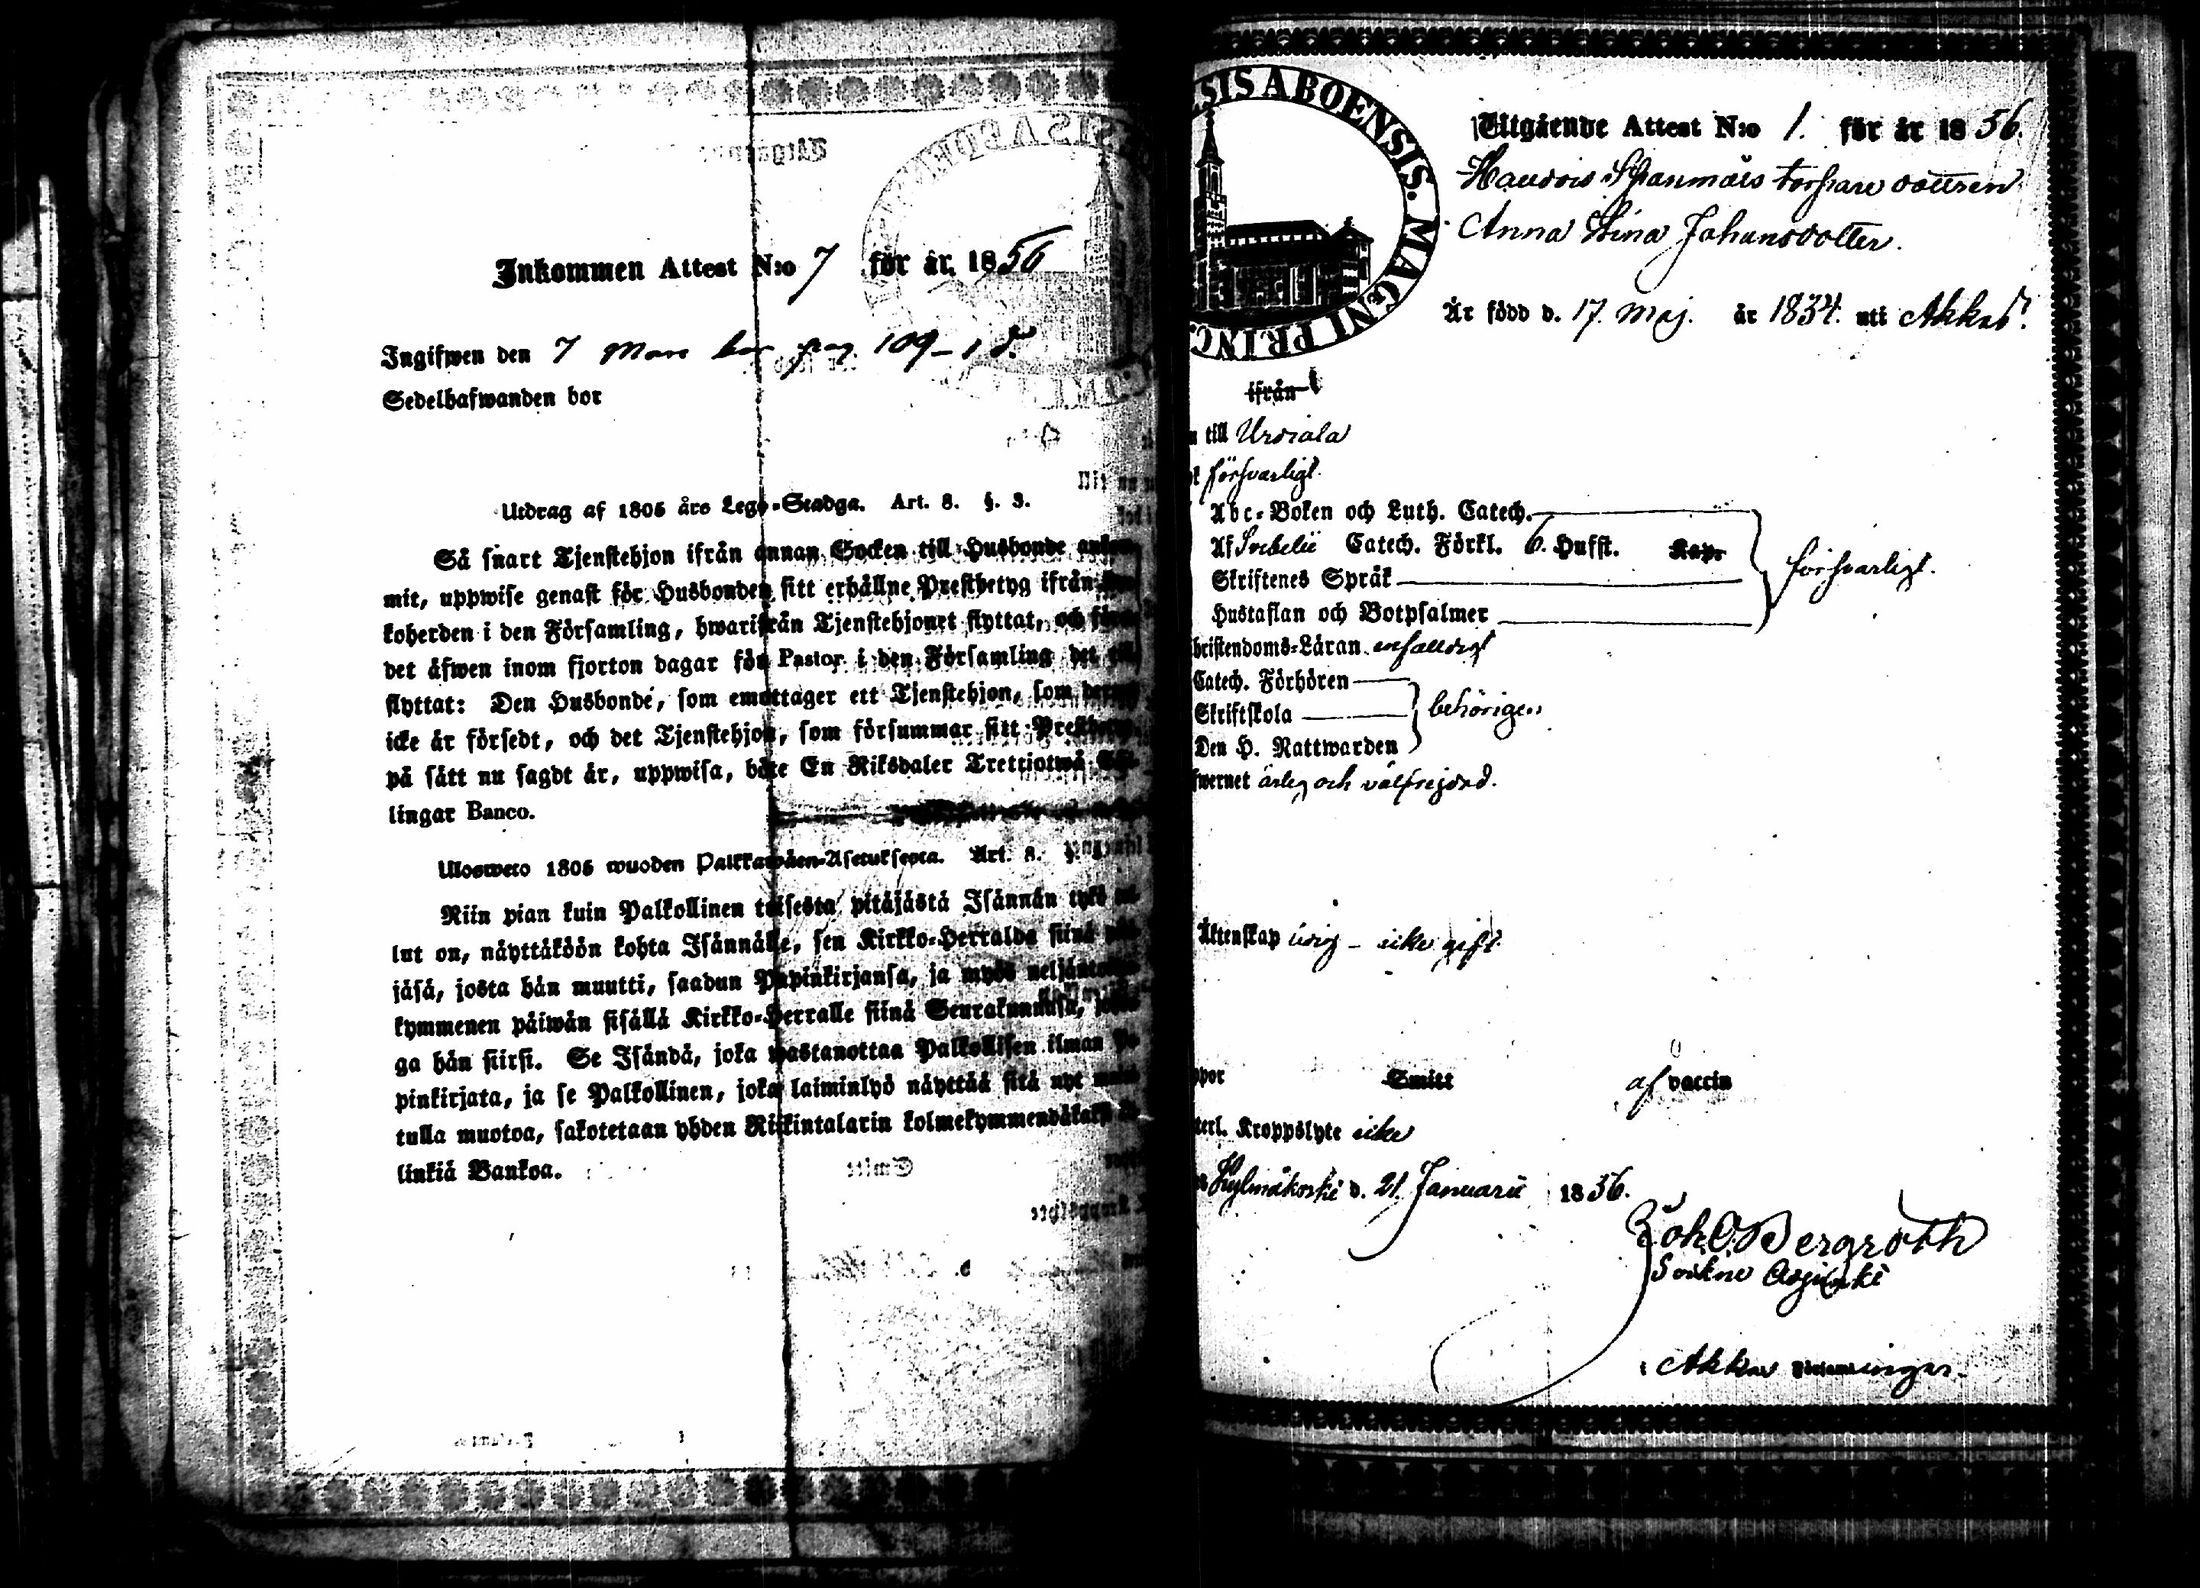 Inkommen Attest N:o 7 för år 1856
Ingifwen den 7 Mars bor pag 109
Sedelhafwanden bor
Utdrag af 1805 års Lego-Stadga. Art. 8. §. 3.
Så snart Tjenstehjon ifrån annan Socken till Husbonde
mit, uppwise genast för Husbonden sitt erhållne Prestbetyg ifrån
koherden i den Församling, hwarifrån Tjenstehjonet flyttat, och
det äfwen inom fjorton dagar för Pastor i den Församling det
flyttat: Den Husbonde, som emottager ett Tjenstehjon, som
icke är försedt, och det Tjenstehjon, som försummar sitt
på sätt nu sagdt är, uppwisa, böte En Riksdaler Trettiotwå
lingar Banco.
Ulosweto 1805 wuoden Palkkawäen-Asetuksesta. Art. 8. §.
Niin pian kuin Palkollinen toisesta pitäjästä Isännän tykö
lut on, näyttäköön kohta Isännälle, sen Kirkko-Herralda siinä
jäsä, josta hän muutti, saadun Papinkirjansa, ja myös
kymmenen päiwän sisällä Kirkko-Herralle siinä Seurakunnasa,
ga hän siirsi. Se Isändä, joka wastanottaa Palkollisen ilman
pinkirjata, ja se Palkollinen, joka laiminlyö näyttää sitä nyt
tulla muotoa, sakotetaan yhden Riikintalarin kolmekymmendäkaksi
linkiä Bankoa.
SIS ABOENSIS. MAGNI PRINC.
Utgående Attest N:o 1. för år 1856.
torpare dottren
Anna Stina Johansdotter.
Är född d. 17. Maj. år 1834. uti Akkas.
ifrån
till Urdiala
försvarligt.
Abc-Boken och Luth. Catech.
Af Svebelii Catech. Förkl. 6. Hufst. Kap.
Skriftenes Språk
försvarligt.
Hustaflan och Botpsalmer
hristendoms-Läran enfaldigt
Catech. Förhören
Skriftskola
behörigen
Den H. Nattwarden
fwernet ärlig och välfrejdad.
Äktenskap ledig - icke gift.
ppor Smitt af vaccin
terl. Kroppslyte icke
Kylmäkoski d. 21 Januarii 1856.
Joh. O. Bergroth
Sockne Adjunkt
i Akkas Församlingar.